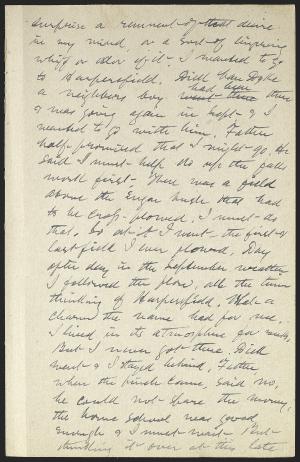 surprise a remnant of that desire
in my mind, or a sort of lingering
whiff or odor of it. I wanted to go
to Harpersfield. Dick Van Dyke
a neighbors boy had been went there
& was going again in Sept. & I
wanted to go with him. Father
half-promised that I might go. He
said I must help do up the fall
work first. There was a field
above the Sugar bush that had
to be cross-plowed. I must do
that. So at it I went the first &
last field I ever plowed. Day
after day in the September weather
I followed the plow, all the time
thinking of Harpersfield. What a
charm the name had for me.
I lived in its atmosphere for weeks.
But I never got there. Dick
went & I stayed behind. Father
when the pinch came, said no,
he could not spare the money,
the home school was good
enough & I must wait. But
thinking it over at this late